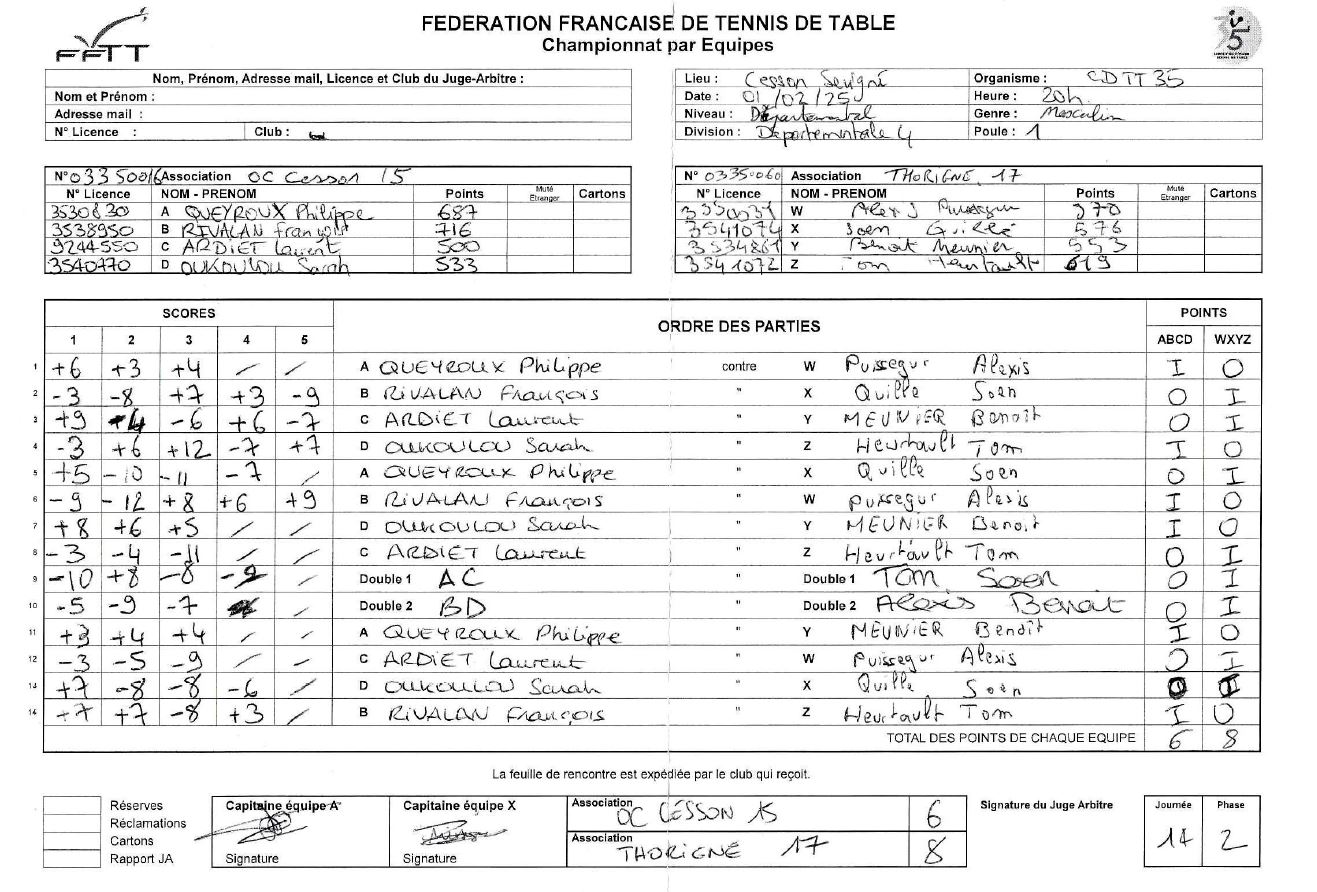 FFTT
FEDERATION FRANCAISE DE TENNIS DE TABLE
Championnat par Equipes
Nom, Prénom, Adresse mail, Licence et Club du Juge-Arbitre :
Nom et Prénom :
Adresse mail :
N° Licence : Club :
Lieu : Cesson Sevigné Organisme : CDTT 35
Date : 01/02/25 Heure : 20h
Niveau : Départemental Genre : Masculin
Division : Départementale 4 Poule : 1
N° 03350016 Association OC Cesson 15
N° Licence NOM - PRENOM Points Muté Etranger Cartons
3530830 A QUEYROUX Philippe 687
3538950 B RIVALAN François 716
9244550 C ARDIET Laurent 500
3540770 D OUKOULOU Sarah 533
N° 03350060 Association THORIGNE 17
N° Licence NOM - PRENOM Points Muté Etranger Cartons
W Puissegur
3541074 X Soen Quillé 576
3534861 Y Benoit Meunier 553
3541072 Z Tom Heurtault 619
SCORES ORDRE DES PARTIES POINTS
1 2 3 4 5 ABCD WXYZ
1 +6 +3 +4 / / A QUEYROUX Philippe contre W Puissegur Alexis I O
2 -3 -8 +7 +3 -9 B RIVALAN François " X Quille Soen O I
3 +9 -6 +6 -7 C ARDIET Laurent " Y MEUNIER Benoît O I
4 -3 +6 +12 -7 +7 D OUKOULOU Sarah " Z Heurtault Tom I O
5 +5 -10 -11 -7 / A QUEYROUX Philippe " X Quille Soen O I
6 -9 -12 +8 +6 +9 B RIVALAN François " W Puissegur Alexis I O
7 +8 +6 +5 / / D OUKOULOU Sarah " Y MEUNIER Benoit I O
8 -3 -4 -11 / / C ARDIET Laurent " Z Heurtault Tom O I
9 -10 +8 -8 / Double 1 AC " Double 1 TOM Soen O I
10 -5 -9 -7 / Double 2 BD " Double 2 Alexis Benoit O I
11 +3 +4 +4 / / A QUEYROUX Philippe " Y MEUNIER Benoît I O
12 -3 -5 -9 / / C ARDIET Laurent " W Puissegur Alexis O I
+7 -8 -8 -6 / D OUKOULOU Sarah " X Quille Soen
14 +7 +7 -8 +3 / B RIVALAN François " Z Heurtault Tom I O
TOTAL DES POINTS DE CHAQUE EQUIPE 6 8
La feuille de rencontre est expédiée par le club qui reçoit.
Réserves
Réclamations
Cartons
Rapport JA
Capitaine équipe A
Signature
Capitaine équipe X
Signature
Association OC CESSON 15 6
Association THORIGNÉ 17 8
Signature du Juge Arbitre
Journée Phase
14 2